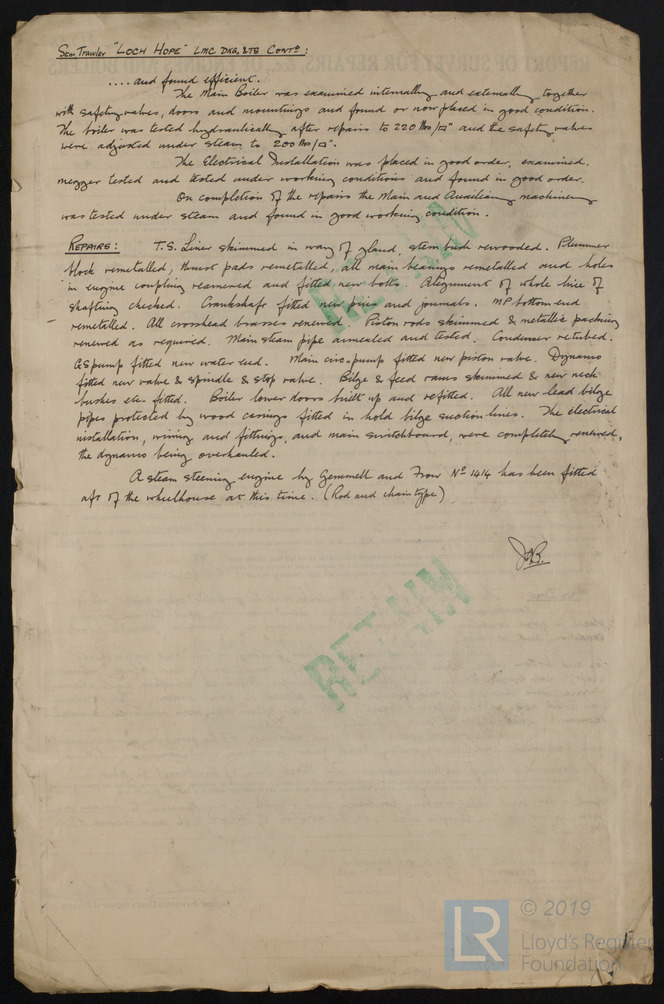 Scw Trawler "LOCH HOPE" LMC DKG, & TS CONTD:
....and found efficient.
The Main Boiler was examined internally and externally together
with safety valves, doors and mountings and found or now placed in good condition.
The boiler was tested hydraulically after repairs to 220 lbs/□" and the safety valves
were adjusted under steam to 200 lbs/□".
The Electrical Installation was placed in good order, examined,
megger tested and tested under working conditions and found in good order.
On completion of the repairs the Main and Auxiliary machinery
was tested under steam and found in good working condition.
REPAIRS: T.S. Liner skimmed in way of gland, stern bush rewooded. Plummer
block remetalled, thrust pads remetalled, all main bearings remetalled and holes
in engine coupling reamered and fitted new bolts. Alignment of whole line of
shafting checked. Crankshaft fitted new pins and journals. MP bottom end
remetalled. All crosshead brasses renewed. Piston rods skimmed & metallic packing
renewed as required. Main steam pipe annealed and tested. Condenser retubed.
GS pump fitted new water end. Main circ. pump fitted new piston valve. Dynamo
fitted new valve & spindle & stop valve. Bilge & feed rams skimmed & new neck
bushes etc fitted. Boiler lower doors built up and refitted. All new lead bilge
pipes protected by wood casings fitted in hold bilge suction lines. The electrical
installation, wiring and fittings, and main switchboard, were completely renewed,
the dynamo being overhauled.
A steam steering engine by Gemmell and Frow No 1414 has been fitted
aft of the wheelhouse at this time. (Rod and chain type)
RETAIN
RETAIN
LR
© 2019
Lloyd's Register
Foundation